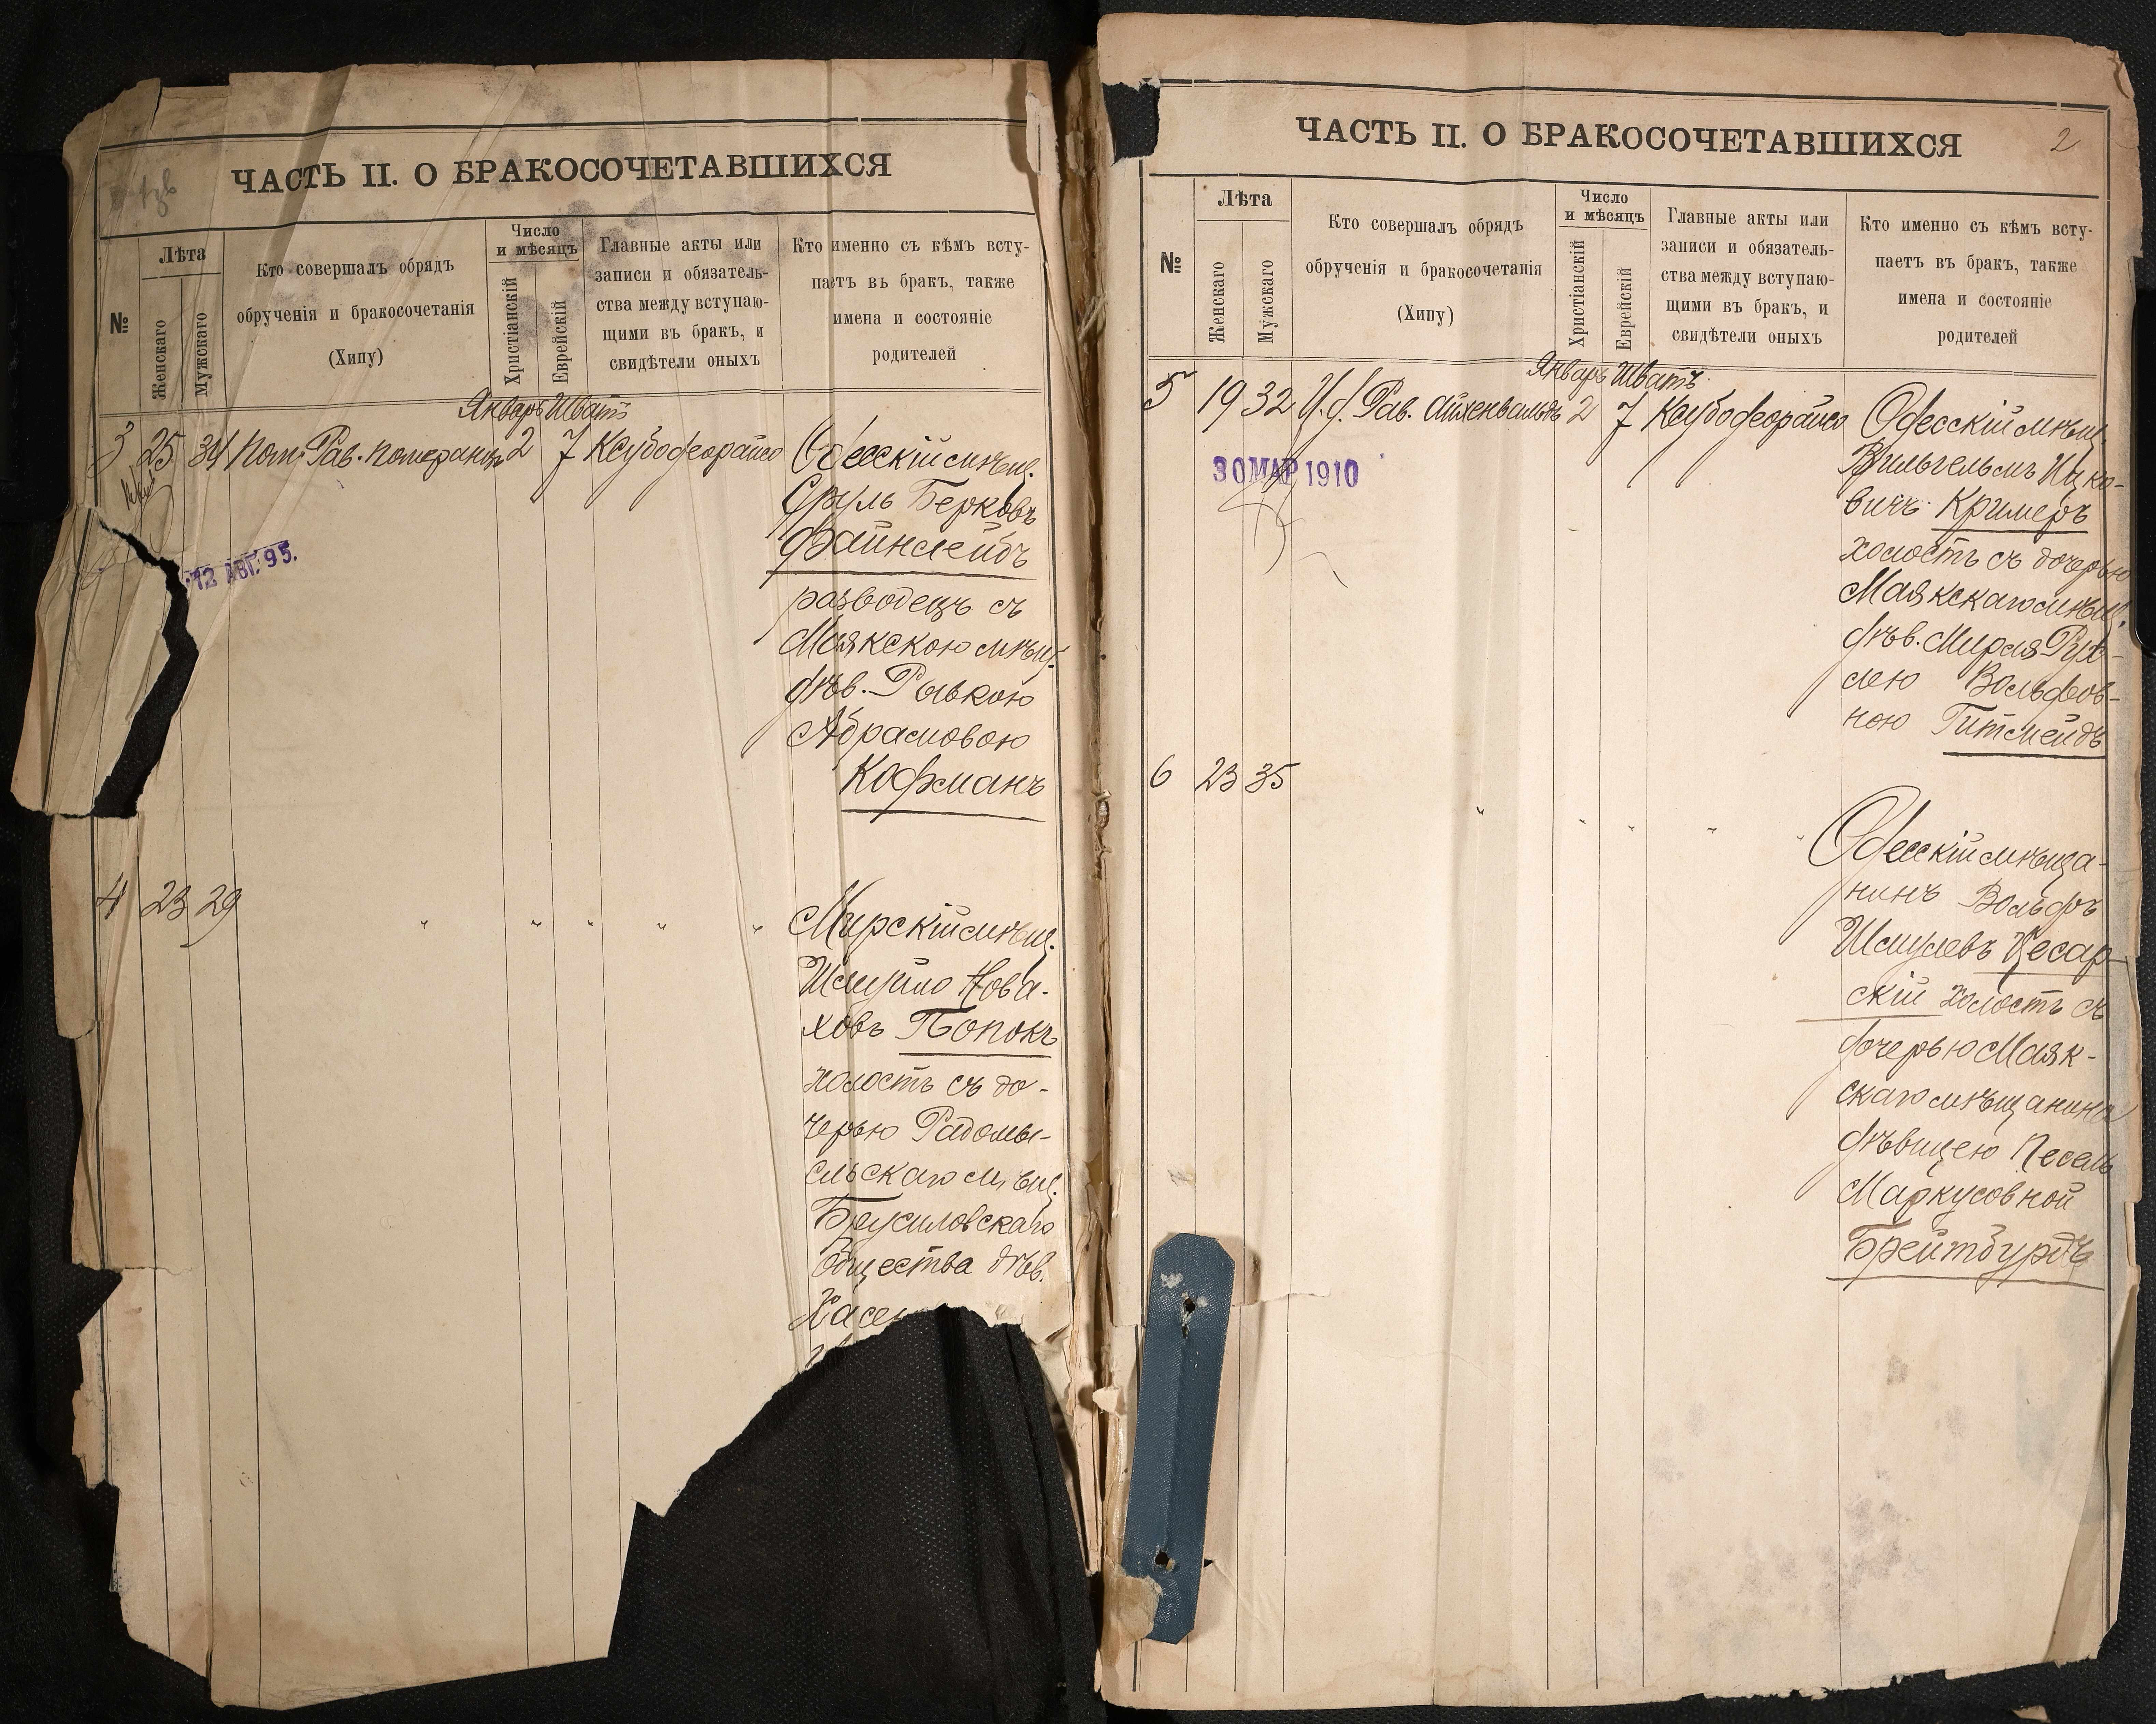 ЧАСТЬ II. О БРАКОСОЧЕТАВШИХСЯ
№
Лѣта
Женскаго
Мужскаго
Кто совершалъ обрядъ
обрученія и бракосочетанія
(Хипу)
Число
и мѣсяцъ
Христіанскій
Еврейскій
Главные акты или
записи и обязатель-
ства между вступаю-
щими въ бракъ, и
свидѣтели оныхъ
Кто именно съ кѣмъ всту-
паетъ въ бракъ, также
имена и состояніе
родителей
Январь Шватъ
3 25 34 Пом. Рав. Померанцъ 2 7 Ксубодеорайсо
Одесскій мѣщ.
Сруль Берковъ
Файнлейбъ
разводецъ съ
Маякскою мѣщ.
дѣв. Рывкою
Абрамовою
Кофманъ
12 АВГ. 95.
4 23 29 " " " " "
Мирскій мѣщ.
Шмуйло Нова-
ховъ Попокъ
холостъ съ до-
черью Радомы-
сльскаго мѣщ.
Брусиловскаго
общества дѣв.
ЧАСТЬ II. О БРАКОСОЧЕТАВШИХСЯ
2
№
Лѣта
Женскаго
Мужскаго
Кто совершалъ обрядъ
обрученія и бракосочетанія
(Хипу)
Число
и мѣсяцъ
Христіанскій
Еврейскій
Главные акты или
записи и обязатель-
ства между вступаю-
щими въ бракъ, и
свидѣтели оныхъ
Кто именно съ кѣмъ всту-
паетъ въ бракъ, также
имена и состояніе
родителей
Январь Шватъ
5 19 32 И. д. Рав. Айхенвальдъ 2 7 Ксубодеорайсо
30 МАР 1910
Одесскій мѣщ.
Вильгельмъ Ицко-
вичъ Кримеръ
холостъ съ дочерью
Маякскаго мѣщ.
дѣв. Мирля Рух-
лею Вольфов-
ною Гитмейдъ
6 23 35 " " " " "
Одесскій мѣща-
нинъ Вольфъ
Шмулевъ Цесар-
скій холостъ съ
дочерью Маяк-
скаго мѣщанина
дѣвицею Песель
Маркусовной
Брейтбурдъ